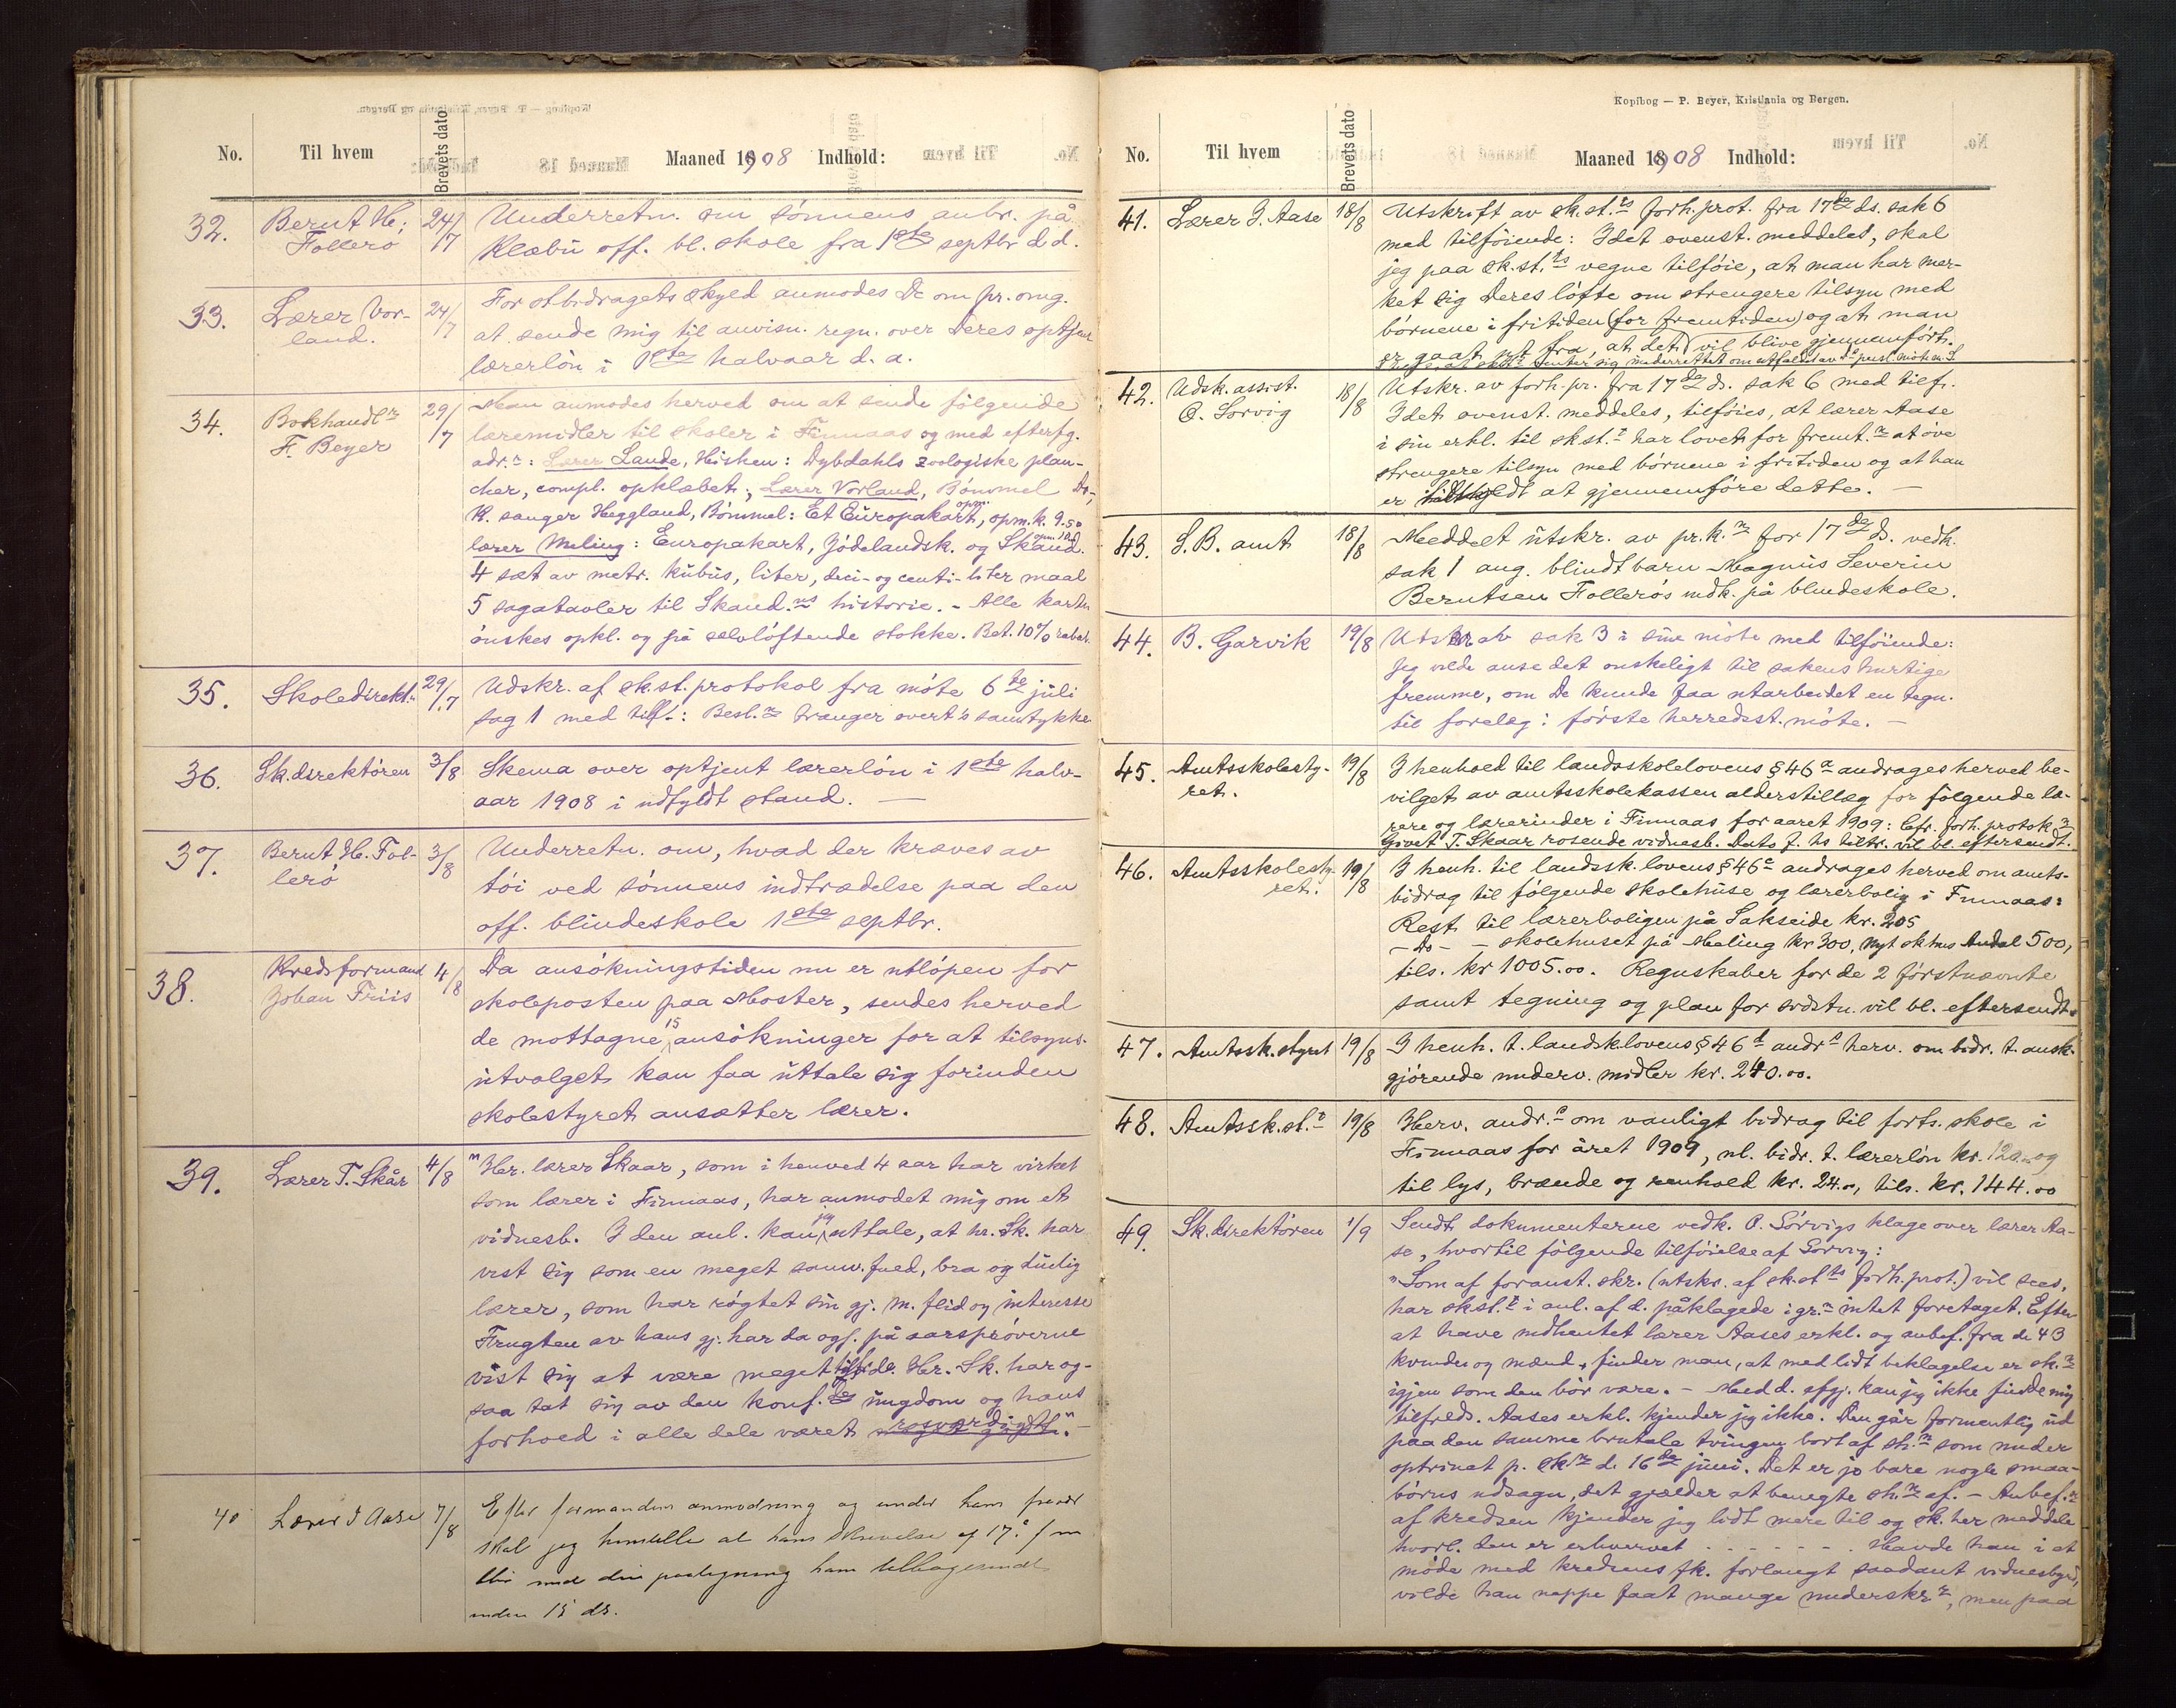 No. Til hvem Brevets dato Maaned 1908 Indhold:
32. Bernt H. Follerø 24/7 Underretn. om sønnens anbr. på
Klæbu off. bl. skole fra 1ste septbr d.d.
33. Lærer Vorland. 24/7 For stbidragets skyld anmodes De om pr. omg.
at sende mig til anvisn. regn. over Deres optjen
lærerløn i 1ste halvaar d. a.
34. Bokhandlr F. Beyer 29/7 Man anmodes herved om at sende følgende
læremidler til skoler i Finnaas og med efterfg.
adr.r: Lærer Lande, Hisken: Dybdahls zoologiske plan-
cher, compl. opklæbet; Lærer Vorland, Bømmel Do,
K. sanger Heggland, Bømmel: Et Europakart, opm. k. 9.50
lærer Meling: Europakart, Jødelandsk. og Skand.
4 sæt av metr. kubus, liter, deci- og centi-liter maal
5 sagatavler til Skand.ns historie. - Alle karter
ønskes opkl. og på selvløftende stokke. Bet. 10% rabat.
35. Skoledirekt.n 29/7 Udskr. af sk.st. protokol fra møte 6te juli
sag 1 med tilf.: Besl.n trænger overt's samtykke.
36. Sk.direktøren 3/8 Skema over optjent lærerløn i 1ste halv-
aar 1908 i udfyldt stand. —
37. Bernt H. Follerø 3/8 Underretn. om, hvad der kræves av
tøi ved sønnens indtrædelse paa den
off. blindeskole 1ste septbr.
38. Kredsformand Johan Friis 4/8 Da ansøkningstiden nu er utløpen for
skoleposten paa Moster, sendes herved
de mottagne 15 ansøkninger for at tilsyns-
utvalget kan faa uttale sig forinden
skolestyret ansætter lærer.
39. Lærer T. Skår 4/8 "Hr. lærer Skaar, som i henved 4 aar har virket
som lærer i Finnaas, har anmodet mig om et
vidnesb. I den anl. kan jeg uttale, at hr. Sk. har
vist sig som en meget samv.fuld, bra og dudig
lærer, som har røgtet sin gj. m. flid og interesse
Frugten av hans gj. har da ogs. på aarsprøverne
vist sig at være meget tilfr.de. Hr. Sk. har og-
saa tat sig av den konf.de ungdom og hans
forhold i alle dele været rosværdigt." -
40 Lærer J Aase 7/8 Efter formandens anmodning og under hans
skal jeg henstille at hans skrivelse af 17. f m
blir med din paategning ham tilbagesendt
inden 15 ds.
Kopibog — P. Beyer, Kristiania og Bergen.
No. Til hvem Brevets dato Maaned 1908 Indhold:
41. Lærer J. Aase 18/8 Utskrift av sk.st.ts forh.prot. fra 17de ds. sak 6
med tilføiende: Idet ovenst. meddeles, skal
jeg paa sk.st.ts vegne tilføie, at man har mer-
ket sig Deres løfte om strengere tilsyn med
børnene i fritiden (for fremtiden) og at man
er gaat ut fra, at det vil blive gjennemført.
42. Udsk.assist. O. Sørvig 18/8 Utskr. av forh.pr. fra 17de ds. sak 6 med tilf.
Idet ovenst. meddeles, tilføies, at lærer Aase
i sin erkl. til sk.st.t har lovet for fremt.n at øve
strengere tilsyn med børnene i fritiden og at han
er at gjennemføre dette. —
43. S. B. amt 18/8 Meddelt utskr. av pr.k.n for 17de ds. vedk.
sak 1 ang. blindt barn Magnus Severin
Berntsen Follerøs indk. på blindeskole.
44. B. Garvik 19/8 Utskr. av sak 3 i s'me møte med tilføiende:
Jeg vilde anse det ønskeligt til sakens hurtige
fremme, om De kunde faa utarbeidet en tegn.
til forelæg i første herredsst. møte. —
45. Amtsskolestyret. 19/8 I henhold til landsskolelovens § 46a andrages herved be-
vilget av amtsskolekassen alderstillæg for følgende læ-
rere og lærerinder i Finnaas for aaret 1909: Cfr. forh.protok.n
Givet T. Skaar rosende vidnesb. Dato f. hs tiltr. vil bl. eftersendt.
46. Amtsskolestyret. 19/8 I henh. til landssk.lovens § 46c andrages herved om amts-
bidrag til følgende skolehuse og lærerbolig i Finnaas:
Rest til lærerboligen på Sakseide kr. 205
- Do - - skolehuset på Meling kr 300, nyt sk.hus Andal 500,
tils. kr 1005.00. Regnskaber for de 2 førstnævnte
samt tegning og plan for sidstn. vil bl. eftersendt.
47. Amtssk.styret 19/8 I henh. t. landsk.lovens § 46d andr.s herv. om bidr. t. ansk-
gjørende underv. midler kr. 240.00.
48. Amtssk.st.t 19/8 Herv. andr.s om vanligt bidrag til forts. skole i
Finnaas for året 1909, nl. bidr. t. lærerløn kr. 120.00 og
til lys, brænde og renhold kr. 24.00, tils. kr. 144.00
49. Sk.direktøren 1/9 Sendt dokumenterne vedk. O. Sørvigs klage over lærer Aa-
se, hvortil følgende tilføielse af Sørvig:
"Som af foranst. skr. (utskr. af sk.st.ts forh.prot.) vil sees,
har skst.t i anl. af d. påklagede i gr.n intet foretaget. Efter
at have indhentet lærer Aases erkl. og anbef. fra de 43
kvinder og mænd, finder man, at med lidt beklagelse er sk.n
igjen som den bør være. - Med d. afgj. kan jeg ikke finde mig
tilfreds. Aases erkl. kjender jeg ikke. Den går formentlig ud
paa den samme brutale tvingen bort af sh.n som under
optrinet p. sk.n d. 16de juni. Det er jo bare nogle smaa-
børns udsagn, det gjælder at benegte sh.n af. - Anbef.n
af kredsen kjender jeg lidt mere til og sk. her meddele
hvorl. den er erhvervet - - - - - - - . Havde han i et
møde med kredsens fk. forlangt saadant vidnesbyrd,
vilde han neppe faat mange underskr.r, men paa